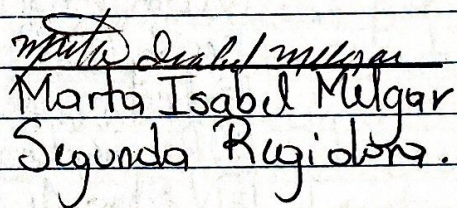 Marta Isabel Melgar
Marta Isabel Melgar
Segunda Regidora.